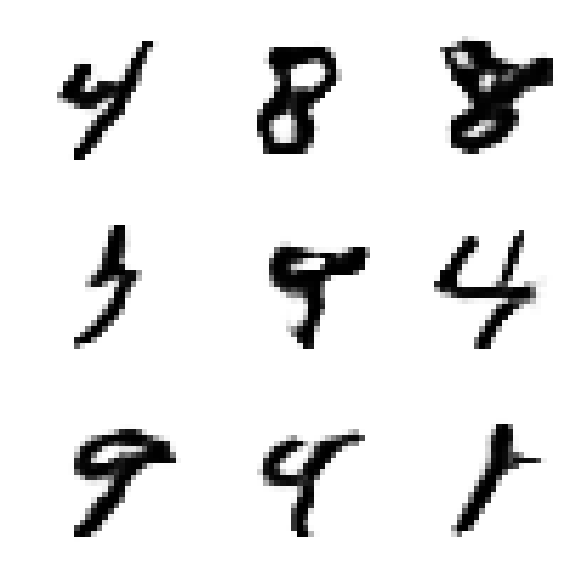 4 8 8
5 9 4
9 9 1